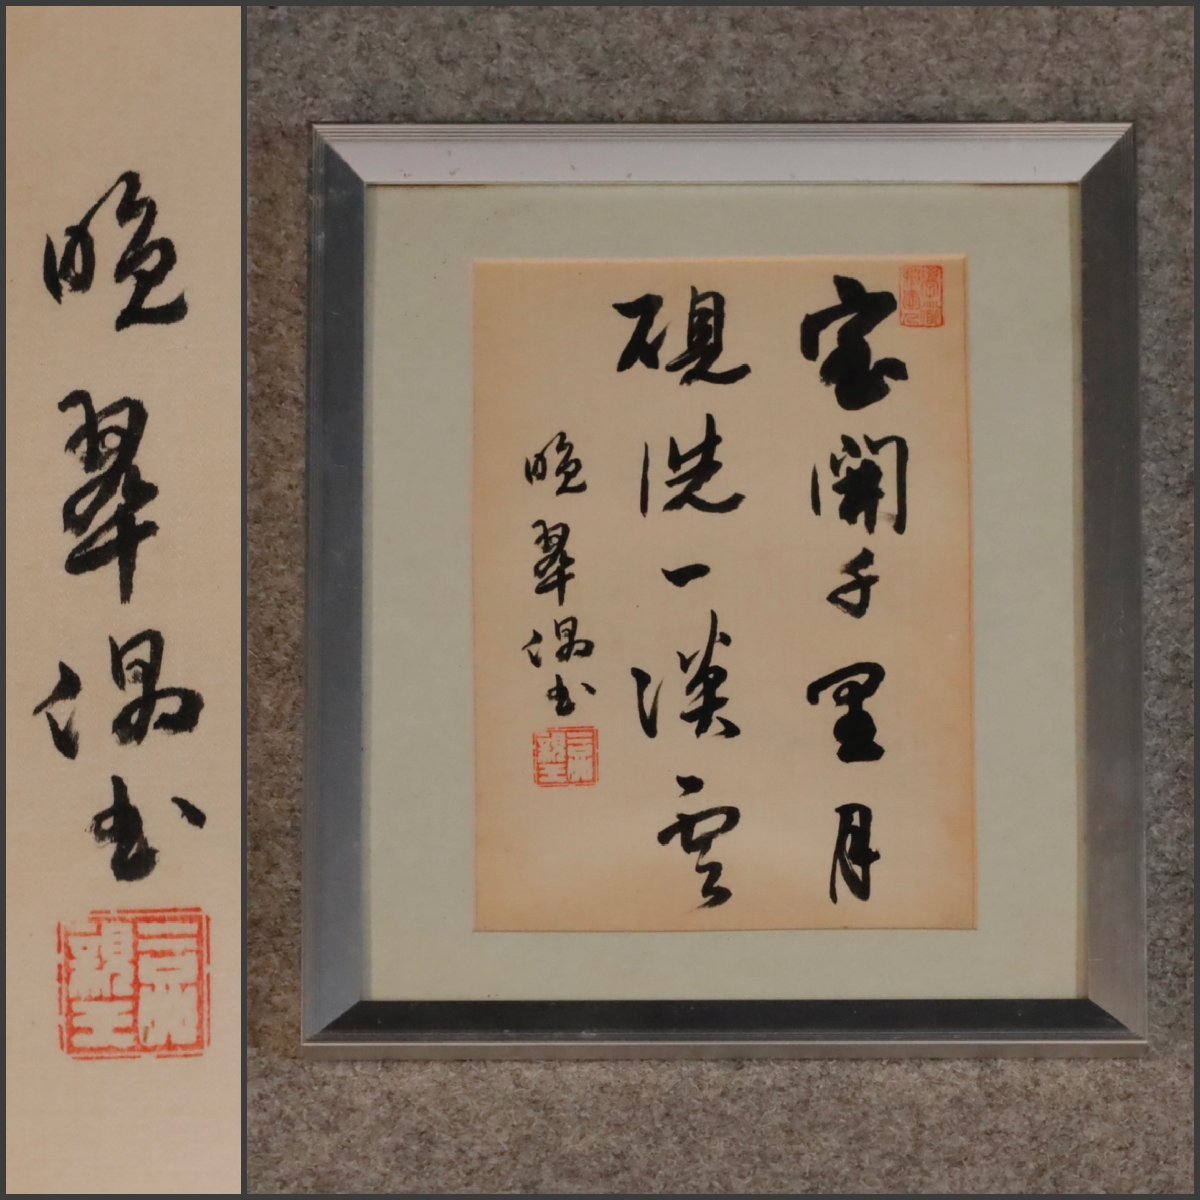 晩翠偶書
窓開千里月
硯洗一渓雲
晩翠偶書